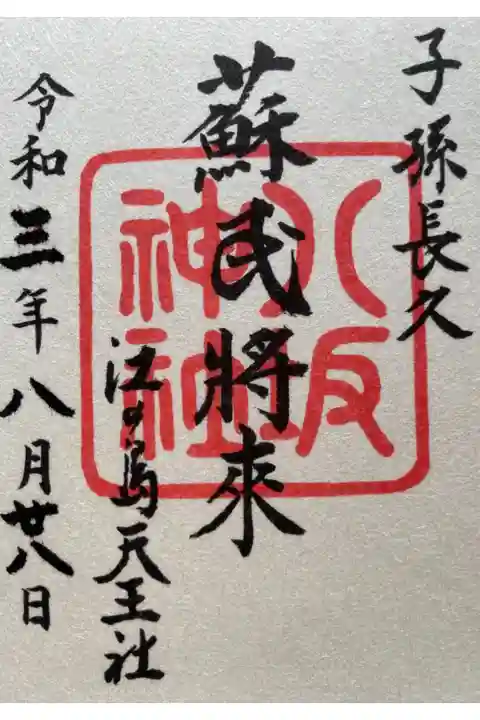 子孫長久
蘇民將來
江の島天王社
令和三年八月廿八日
八坂神社